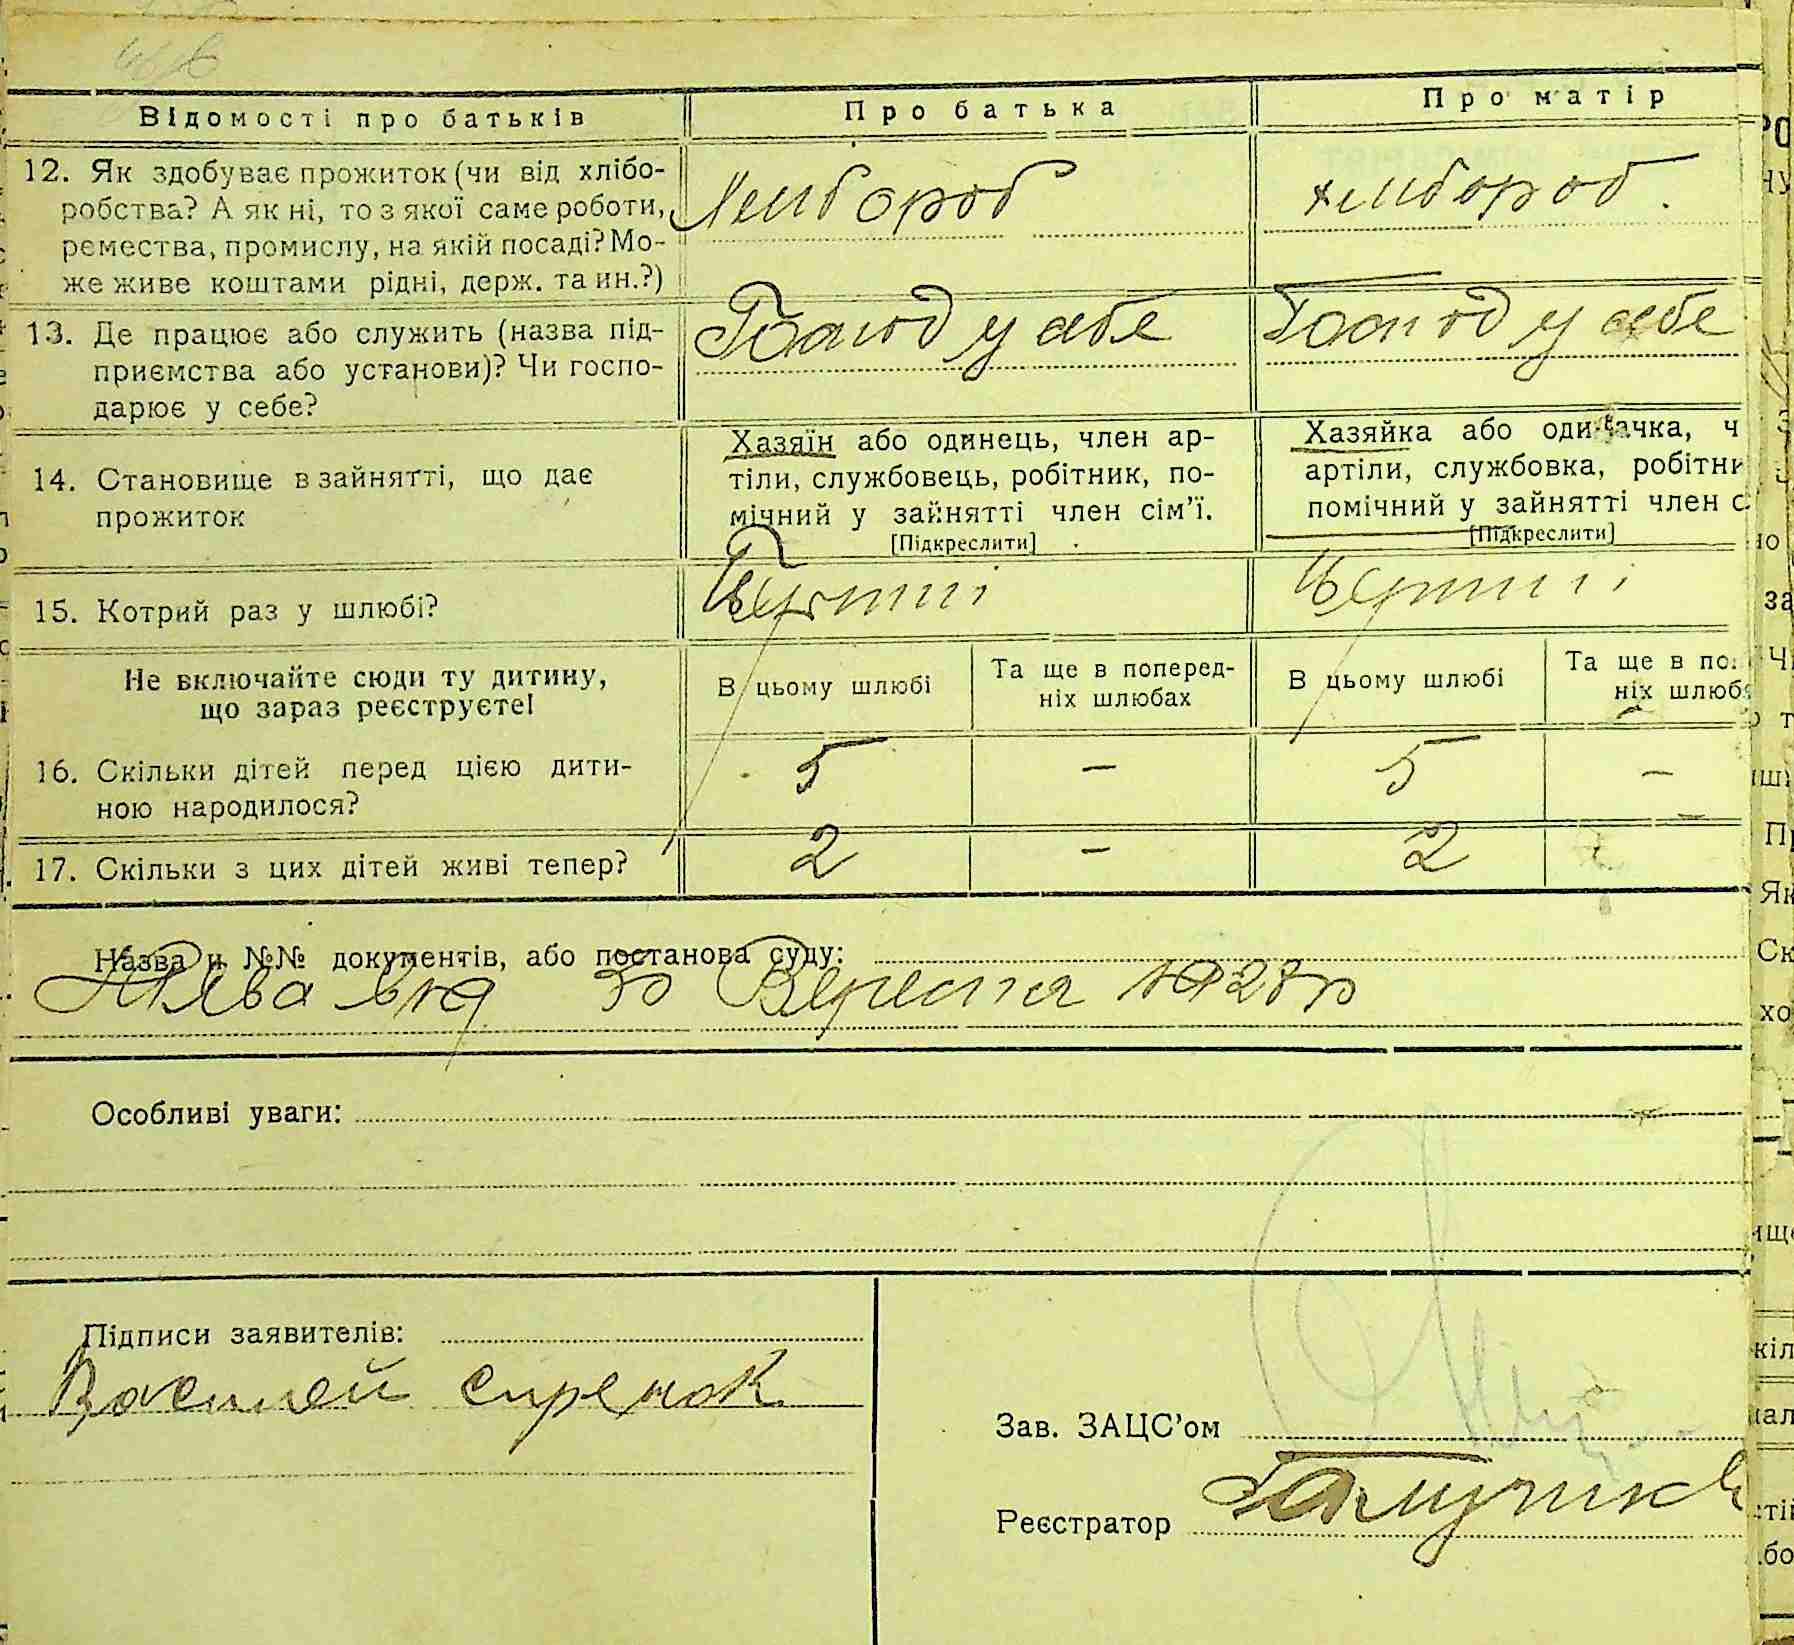 Відомості про батьків
Про батька
Про матір
12. Як здобуває прожиток (чи від хлібо-
робства? А як ні, то з якої саме роботи,
ремества, промислу, на якій посаді? Мо-
же живе коштами рідні, держ. та ин.?)
хлибороб
хлибороб.
13. Де працює або служить (назва під-
приємства або установи)? Чи госпо-
дарює у себе?
у себе
у себе
14. Становище в зайнятті, що дає
прожиток
Хазяїн або одинець, член ар-
тіли, службовець, робітник, по-
мічний у зайнятті член сім'ї.
[Підкреслити]
Хазяйка або одиначка, ч
артіли, службовка, робітни
помічний у зайнятті член с
[Підкреслити]
15. Котрий раз у шлюбі?
Не включайте сюди ту дитину,
що зараз реєструєте!
В цьому шлюбі
Та ще в поперед-
ніх шлюбах
В цьому шлюбі
Та ще в по
ніх шлюб
16. Скільки дітей перед цією дити-
ною народилося?
5 – 5 –
17. Скільки з цих дітей живі тепер?
2 – 2
Назва й №№ документів, або постанова суду:
30 Вересня 1928р
Особливі уваги:
Підписи заявителів:
Василей
Зав. ЗАЦС'ом
Реєстратор